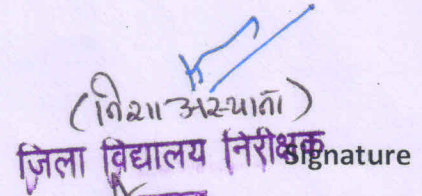 (निशा अस्थाना)
जिला विद्यालय निरीक्षक
Signature